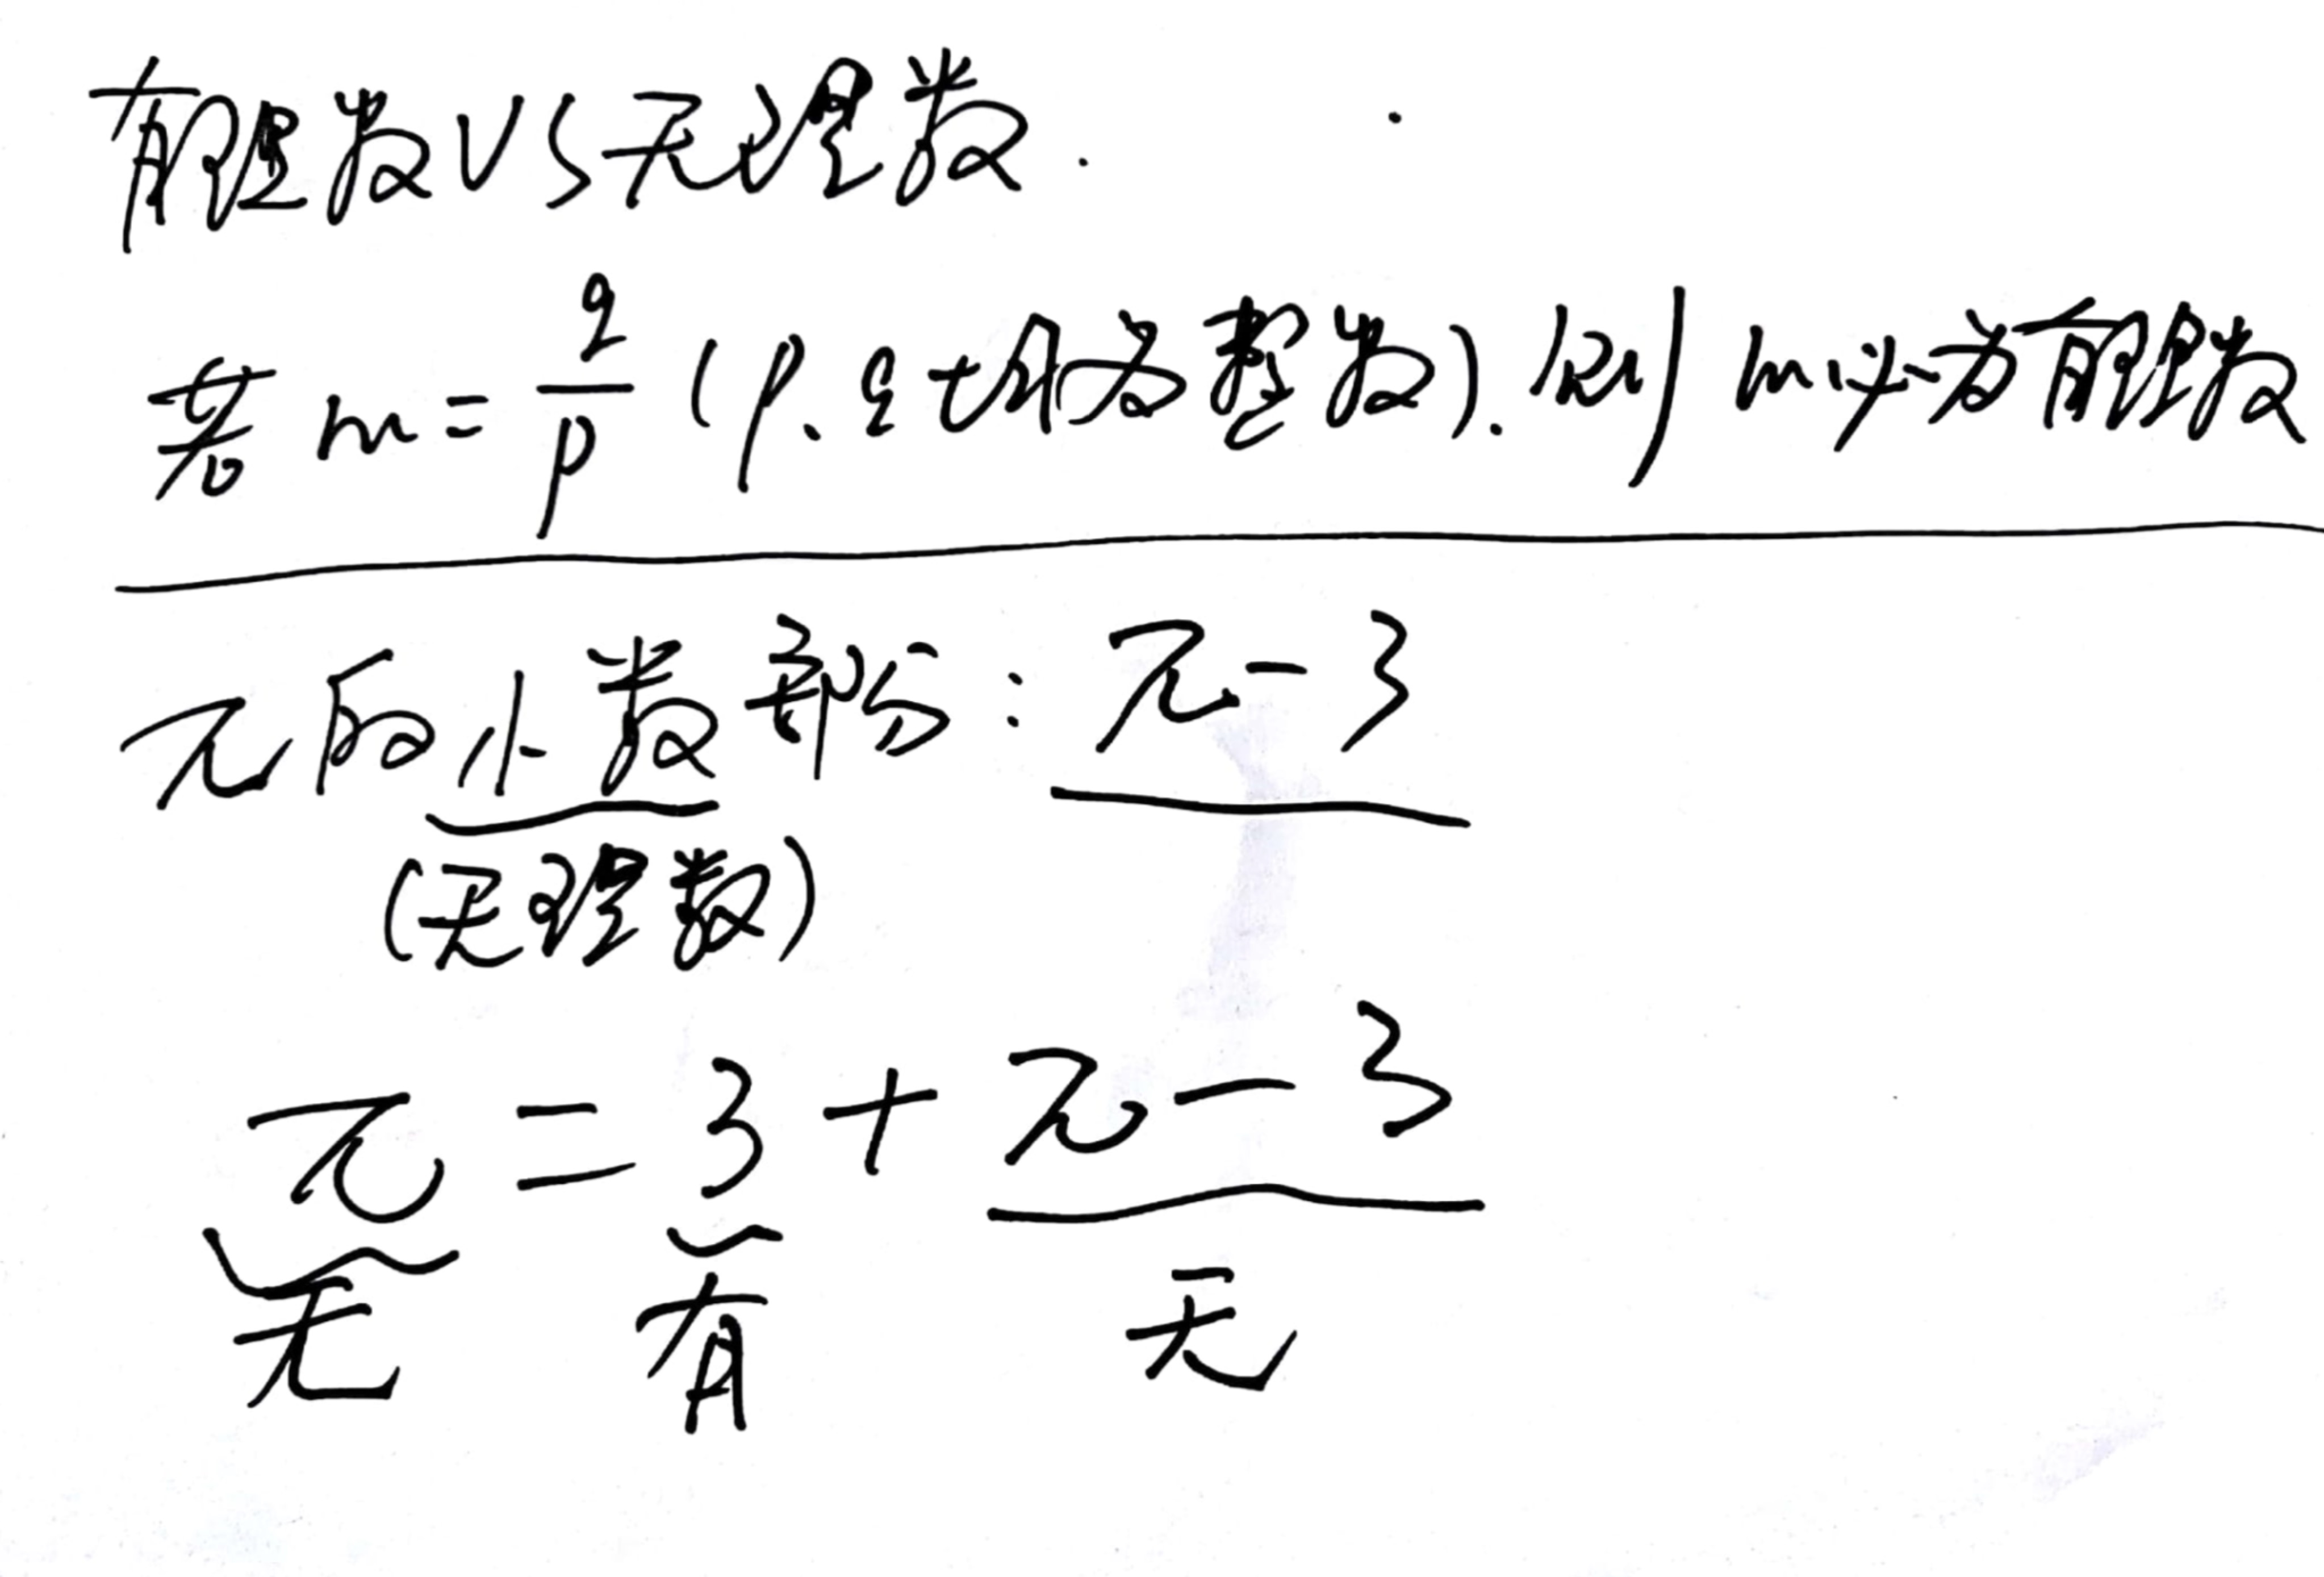 有理数VS无理数.
若 m = q/p (p、q均为整数). 则 m必为有理数
π的小数部分: π-3
(无理数)
π = 3 + π-3
无 有 无